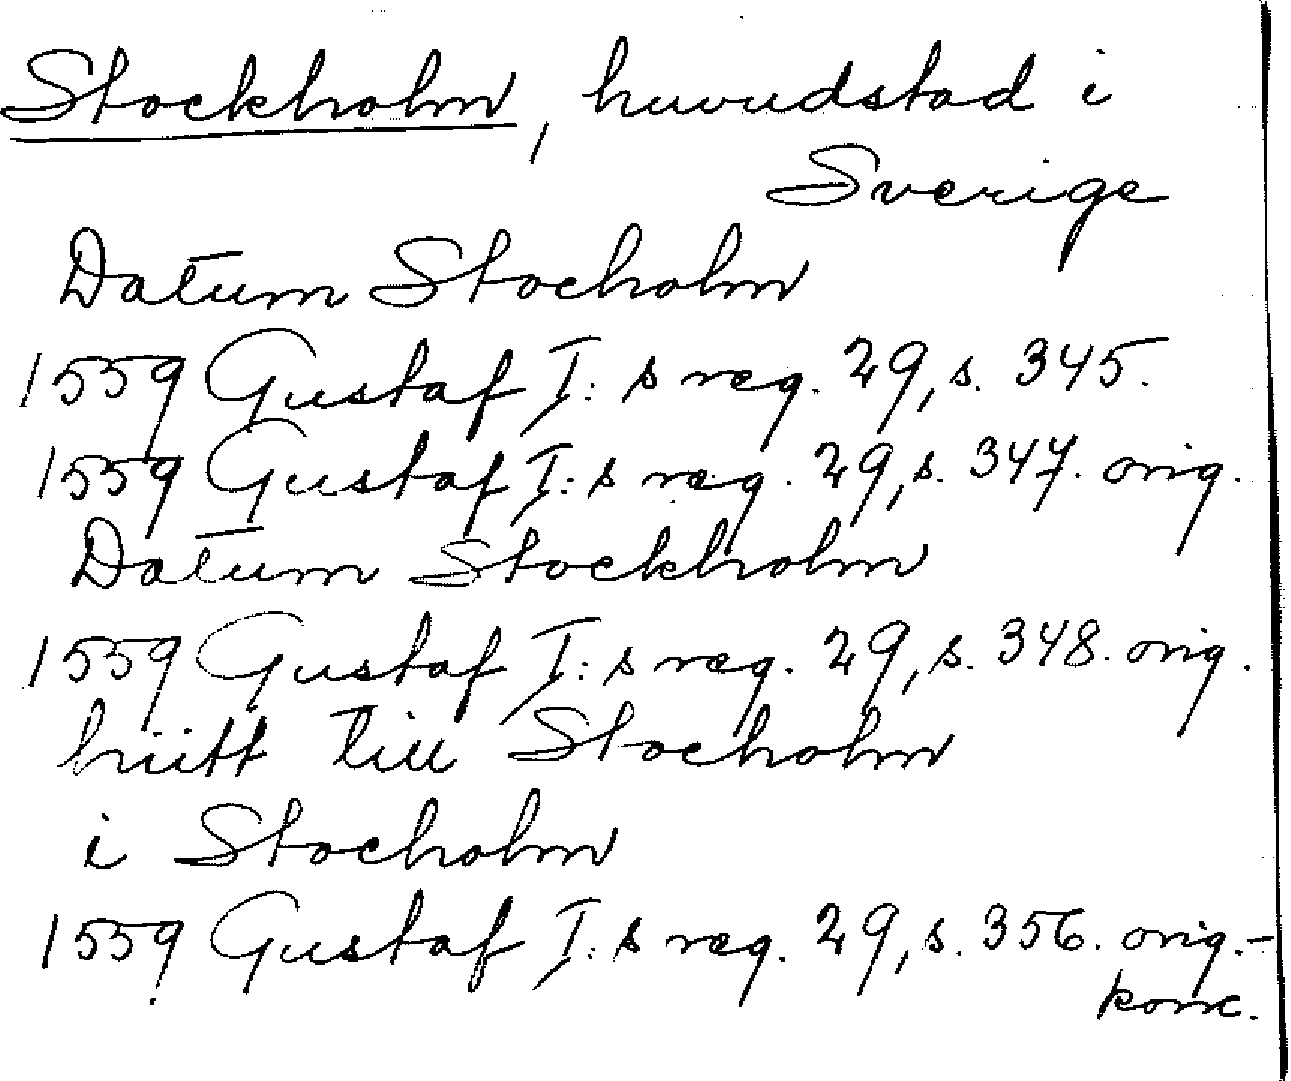 Stockholm, huvudstad i
Sverige
Datum Stocholm
1559 Gustaf I:s reg. 29, s. 345.
1559 Gustaf I:s reg. 29, s. 347. orig.
Datum Stockholm
1559 Gustaf I:s reg. 29, s. 348. orig.
hiitt till Stocholm
i Stocholm
1559 Gustaf I:s reg. 29, s. 356. orig.-
konc.